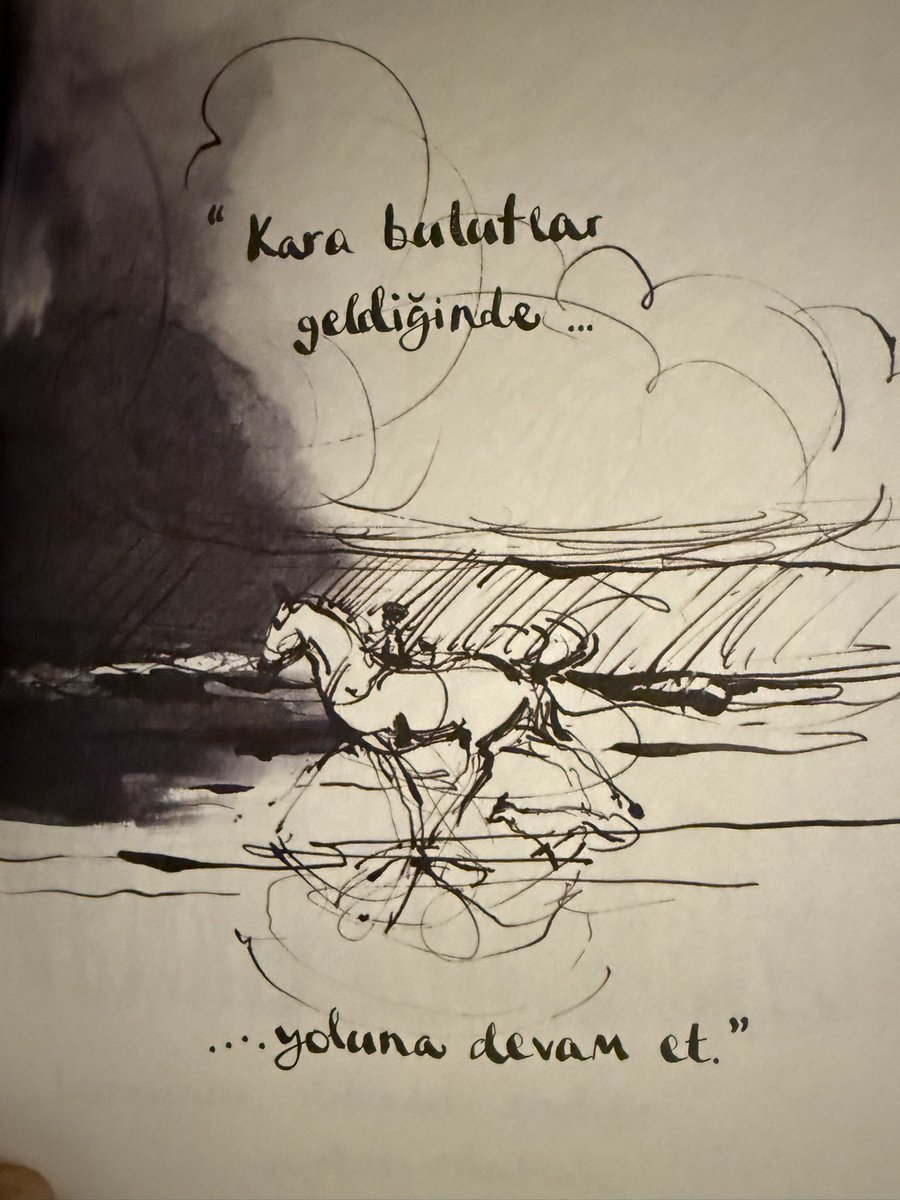 “Kara bulutlar
geldiğinde ...
....yoluna devam et.”